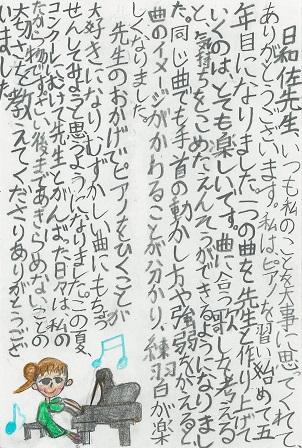 日和佐先生、いつも私のことを大事に思ってくれて
ありがとうございます。私はピアノを習い始めて五
年目になりました。一つの曲を先生と作り上げて
いくのは、とても楽しいです。曲に合った歌詞を考える
と、気持ちをこめたえんそうができるようになりまし
た。同じ曲でも手首の動かし方や強弱をかえると、
曲のイメージがかわることが分かり、練習が楽
しくなりました。
先生のおかげでピアノをひくことが
大好きになり、むずかしい曲にもちょう
せんしてみようと思うようになりました。この夏、
コンクールにむけて先生とがんばった日々は、私の
たから物です。さい後まであきらめないことの
大切さを教えてくださりありがとうござ
いました。